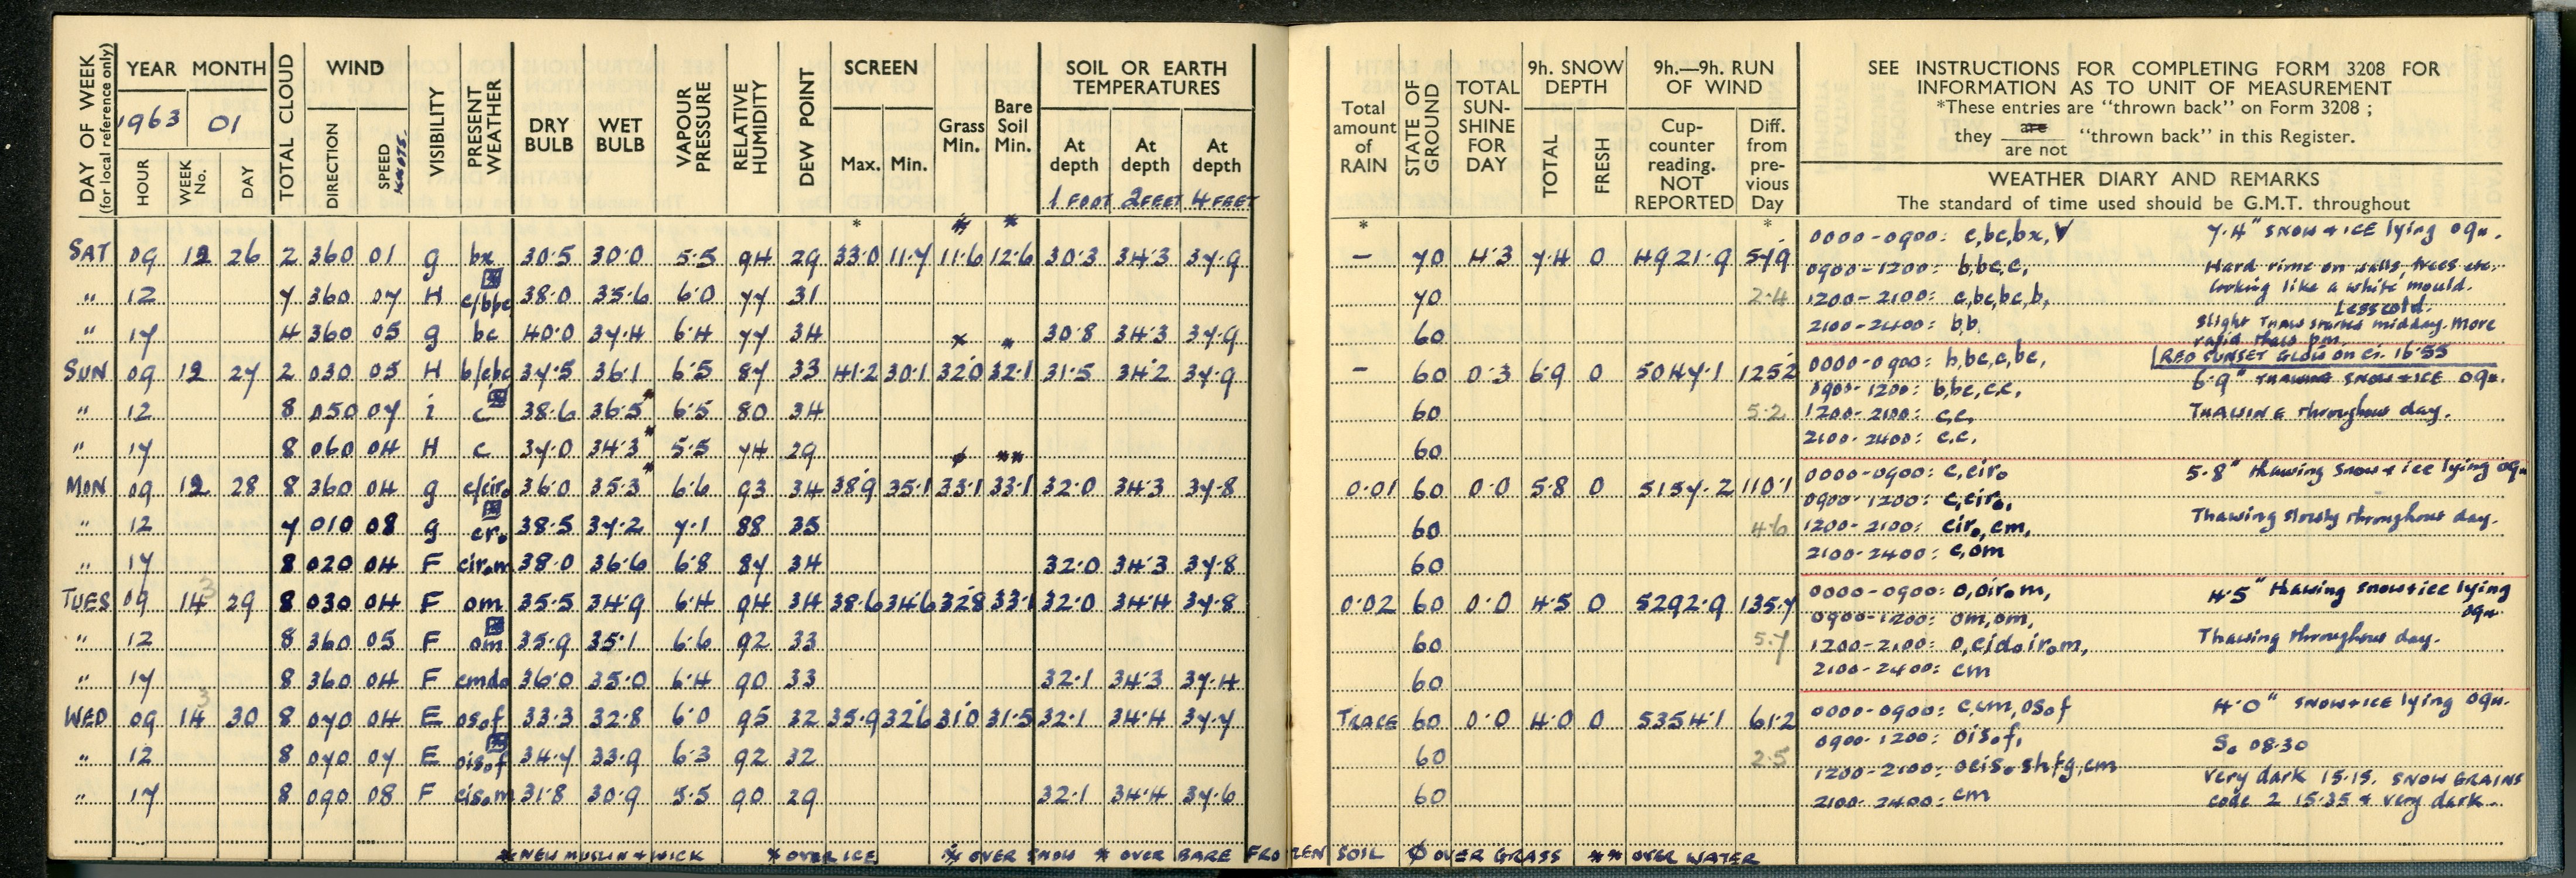 DAY OF WEEK (for local reference only)
YEAR MONTH
1963 01
HOUR WEEK No. DAY
TOTAL CLOUD
WIND
DIRECTION SPEED KNOTS.
VISIBILITY
PRESENT WEATHER
DRY BULB
WET BULB
VAPOUR PRESSURE
RELATIVE HUMIDITY
DEW POINT
SCREEN
Max. Min.
Grass Min.
Bare Soil Min.
SOIL OR EARTH TEMPERATURES
At depth At depth At depth
1 FOOT 2 FEET 4 FEET
* * *
SAT 09 12 26 2 360 01 g bx 30.5 30.0 5.5 94 29 33.0 11.7 11.6 12.6 30.3 34.3 37.9
" 12 7 360 07 H c/bbc 38.0 35.6 6.0 77 31
" 17 4 360 05 g bc 40.0 37.4 6.4 77 34 30.8 34.3 37.9
SUN 09 12 27 2 030 05 H b/cbc 37.5 36.1 6.5 87 33 41.2 30.1 32.0 32.1 31.5 34.2 37.9
" 12 8 050 07 i c 38.6 36.5* 6.5 80 34
" 17 8 060 04 H c 37.0 34.3* 5.5 74 29
MON 09 12 28 8 360 04 g c/ciro 36.0 35.3* 6.6 93 34 38.9 35.1 33.1 33.1 32.0 34.3 37.8
" 12 7 010 08 g cro 38.5 37.2 7.1 88 35
" 17 8 020 04 F cirom 38.0 36.6 6.8 87 34 32.0 34.3 37.8
TUES 09 14 3 29 8 030 04 F om 35.5 34.9 6.4 94 34 38.6 34.6 32.8 33.1 32.0 34.4 37.8
" 12 8 360 05 F om 35.9 35.1 6.6 92 33
" 17 8 360 04 F cmdo 36.0 35.0 6.4 90 33 32.1 34.3 37.4
WED 09 14 3 30 8 070 04 E osof 33.3 32.8 6.0 95 32 35.9 32.6 31.0 31.5 32.1 34.4 37.7
" 12 8 070 07 E oisof 34.7 33.9 6.3 92 32
" 17 8 090 08 F cisom 31.8 30.9 5.5 90 29 32.1 34.4 37.6
* NEW MUSLIN + WICK * OVER ICE * OVER SNOW * OVER BARE FROZEN SOIL Ø OVER GRASS ** OVER WATER
Total amount of RAIN
STATE OF GROUND
TOTAL SUN-SHINE FOR DAY
9h. SNOW DEPTH
TOTAL FRESH
9h.—9h. RUN OF WIND
Cup-counter reading. NOT REPORTED
Diff. from pre-vious Day
SEE INSTRUCTIONS FOR COMPLETING FORM 3208 FOR
INFORMATION AS TO UNIT OF MEASUREMENT
*These entries are "thrown back" on Form 3208 ;
they are / are not "thrown back" in this Register.
WEATHER DIARY AND REMARKS
The standard of time used should be G.M.T. throughout
* *
— 70 4.3 7.4 0 4921.9 57.9
0000-0900: c,bc,bx,V 7.4" SNOW + ICE lying 09h.
0900-1200: b,bc,c, Hard rime on walls, trees etc.
70 2.4
looking like a white mould.
1200-2100: c,bc,bc,b, Less cold.
60
2100-2400: b,b. Slight thaw started midday. More
rapid thaw pm.
RED SUNSET GLOW on Ci. 16.55
— 60 0.3 6.9 0 5047.1 125.2
0000-0900: b,bc,c,bc, 6.9" THAWING SNOW + ICE 09h.
0900-1200: b,bc,c,c,
60 5.2
1200-2100: c,c, THAWING throughout day.
60
2100-2400: c,c,
0.01 60 0.0 5.8 0 5157.2 110.1
0000-0900: c,ciro 5.8" thawing snow + ice lying 09h
0900-1200: c,ciro,
60 4.6
1200-2100: ciro,cm, Thawing slowly throughout day.
60
2100-2400: c,om
0.02 60 0.0 4.5 0 5292.9 135.7
0000-0900: o,oirom, 4.5" Thawing snow + ice lying
09h
0900-1200: om,om,
60 5.7
1200-2100: o,cidoirom, Thawing throughout day.
60
2100-2400: cm
TRACE 60 0.0 4.0 0 5354.1 61.2
0000-0900: c,cm,osof 4.0" SNOW + ICE lying 09h.
0900-1200: oisof, So 08.30
60 2.5
1200-2100: ocisoshfg,cm Very dark 15.15. SNOW GRAINS
60
2100-2400: cm code 2 15.35 + very dark.